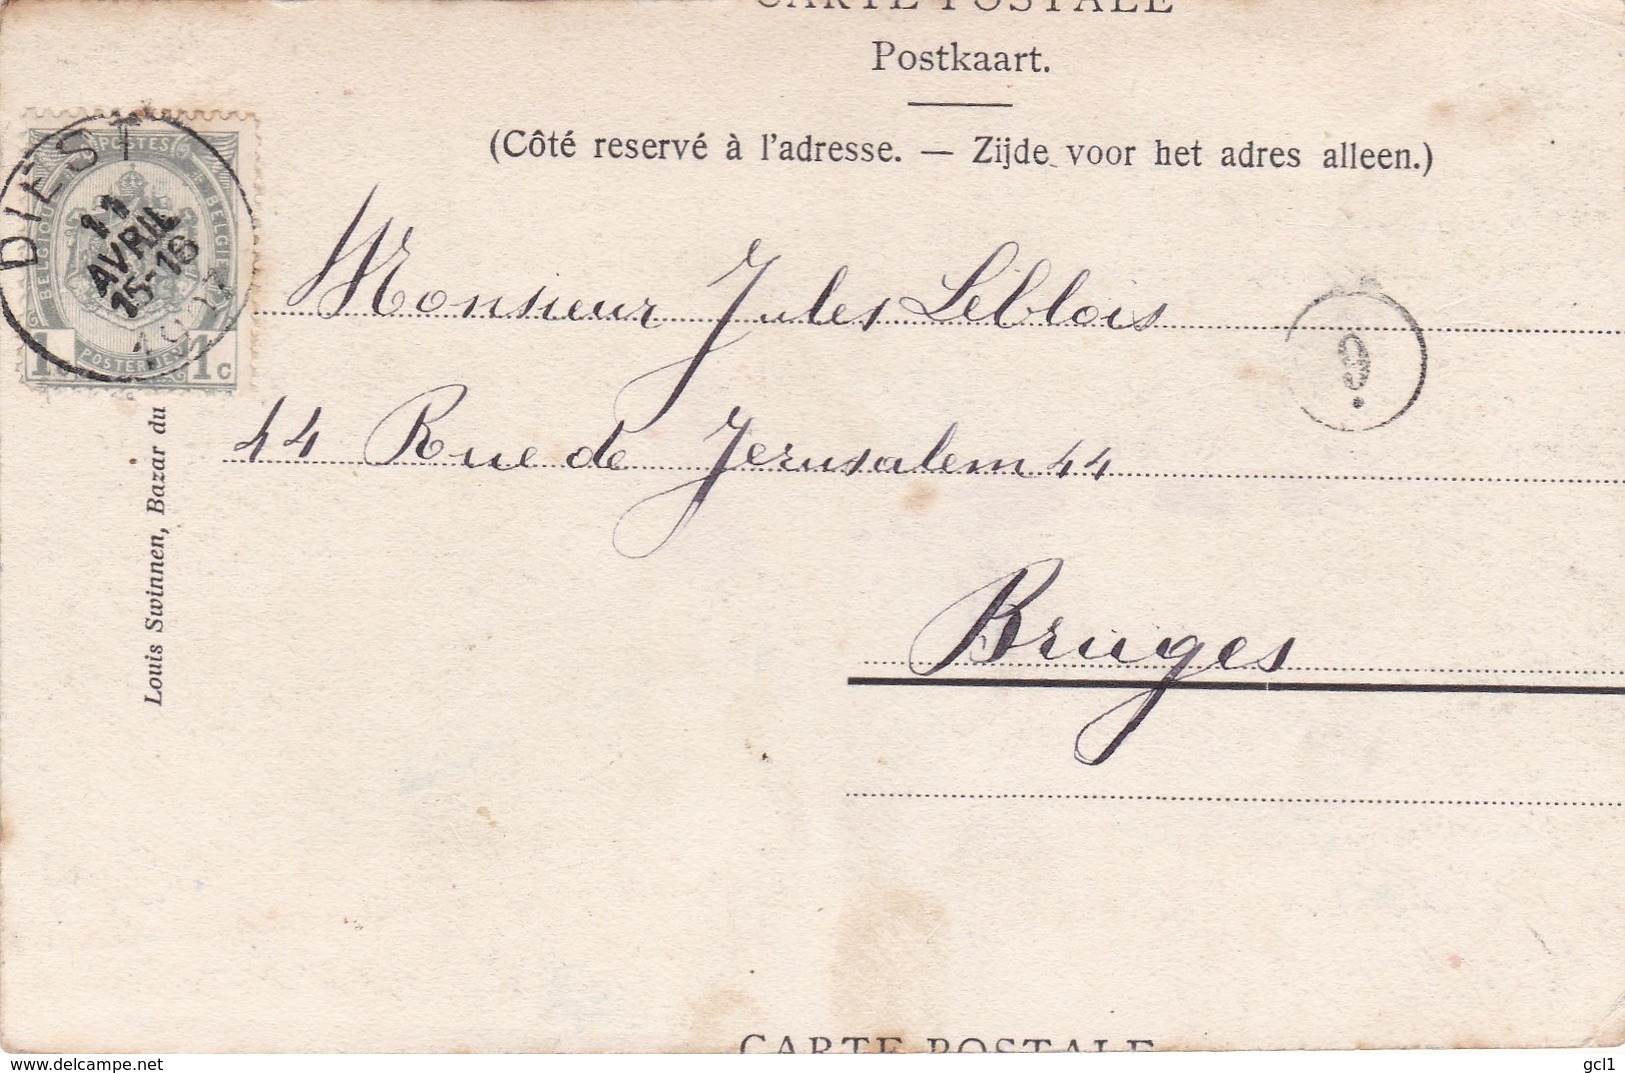 CARTE POSTALE
Postkaart.
(Côté reservé à l'adresse. — Zijde voor het adres alleen.)
DIEST
11
AVRIL
15-16
POSTES
BELGIQUE
BELGIE
POSTERIJEN
1 1c
Monsieur Jules Leblois
9
44 Rue de Jerusalem 44
Bruges
Louis Swinnen, Bazar du
CARTE POSTALE
delcampe.net
gcl1